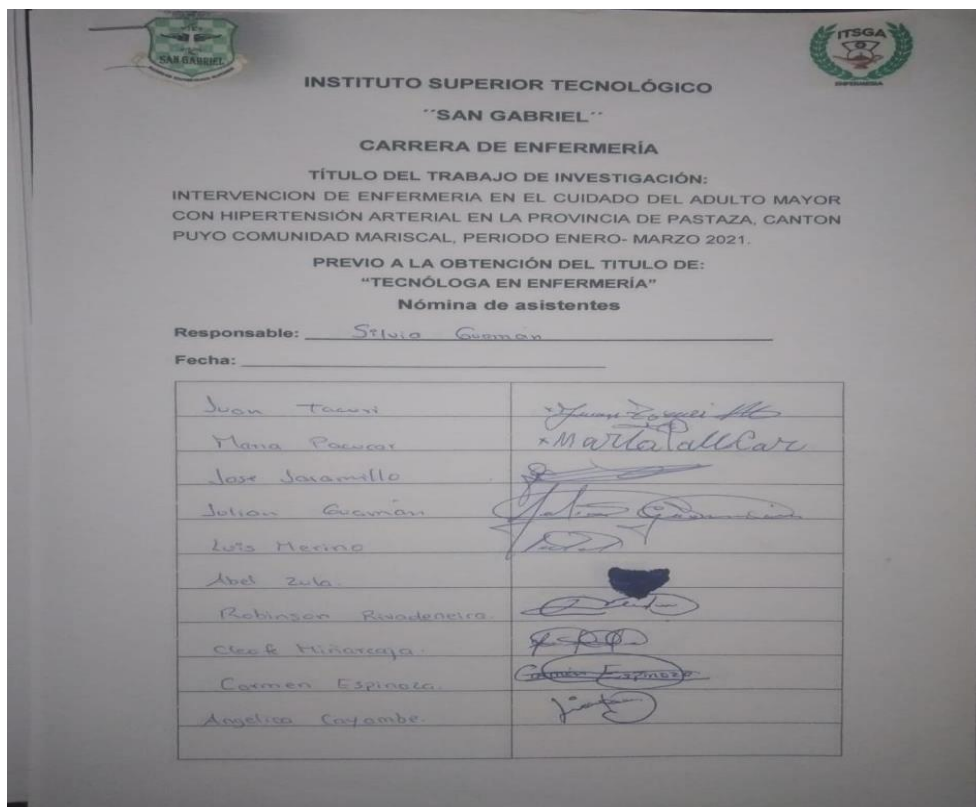 SAN GABRIEL
ITSGA
ENFERMERIA
INSTITUTO SUPERIOR TECNOLÓGICO
´´SAN GABRIEL´´
CARRERA DE ENFERMERÍA
TÍTULO DEL TRABAJO DE INVESTIGACIÓN:
INTERVENCION DE ENFERMERIA EN EL CUIDADO DEL ADULTO MAYOR
CON HIPERTENSIÓN ARTERIAL EN LA PROVINCIA DE PASTAZA, CANTON
PUYO COMUNIDAD MARISCAL, PERIODO ENERO- MARZO 2021.
PREVIO A LA OBTENCIÓN DEL TITULO DE:
“TECNÓLOGA EN ENFERMERÍA”
Nómina de asistentes
Responsable: Silvia Guamán
Fecha:
Juan Tacuri
Maria Paucar
Jose Jaramillo
Julian Guamán
Luis Merino
Abel Zula.
Robinson Rivadeneira.
Miñarcaja.
Carmen Espinoza. Carmen Espinoza
Angelica Cayambe.